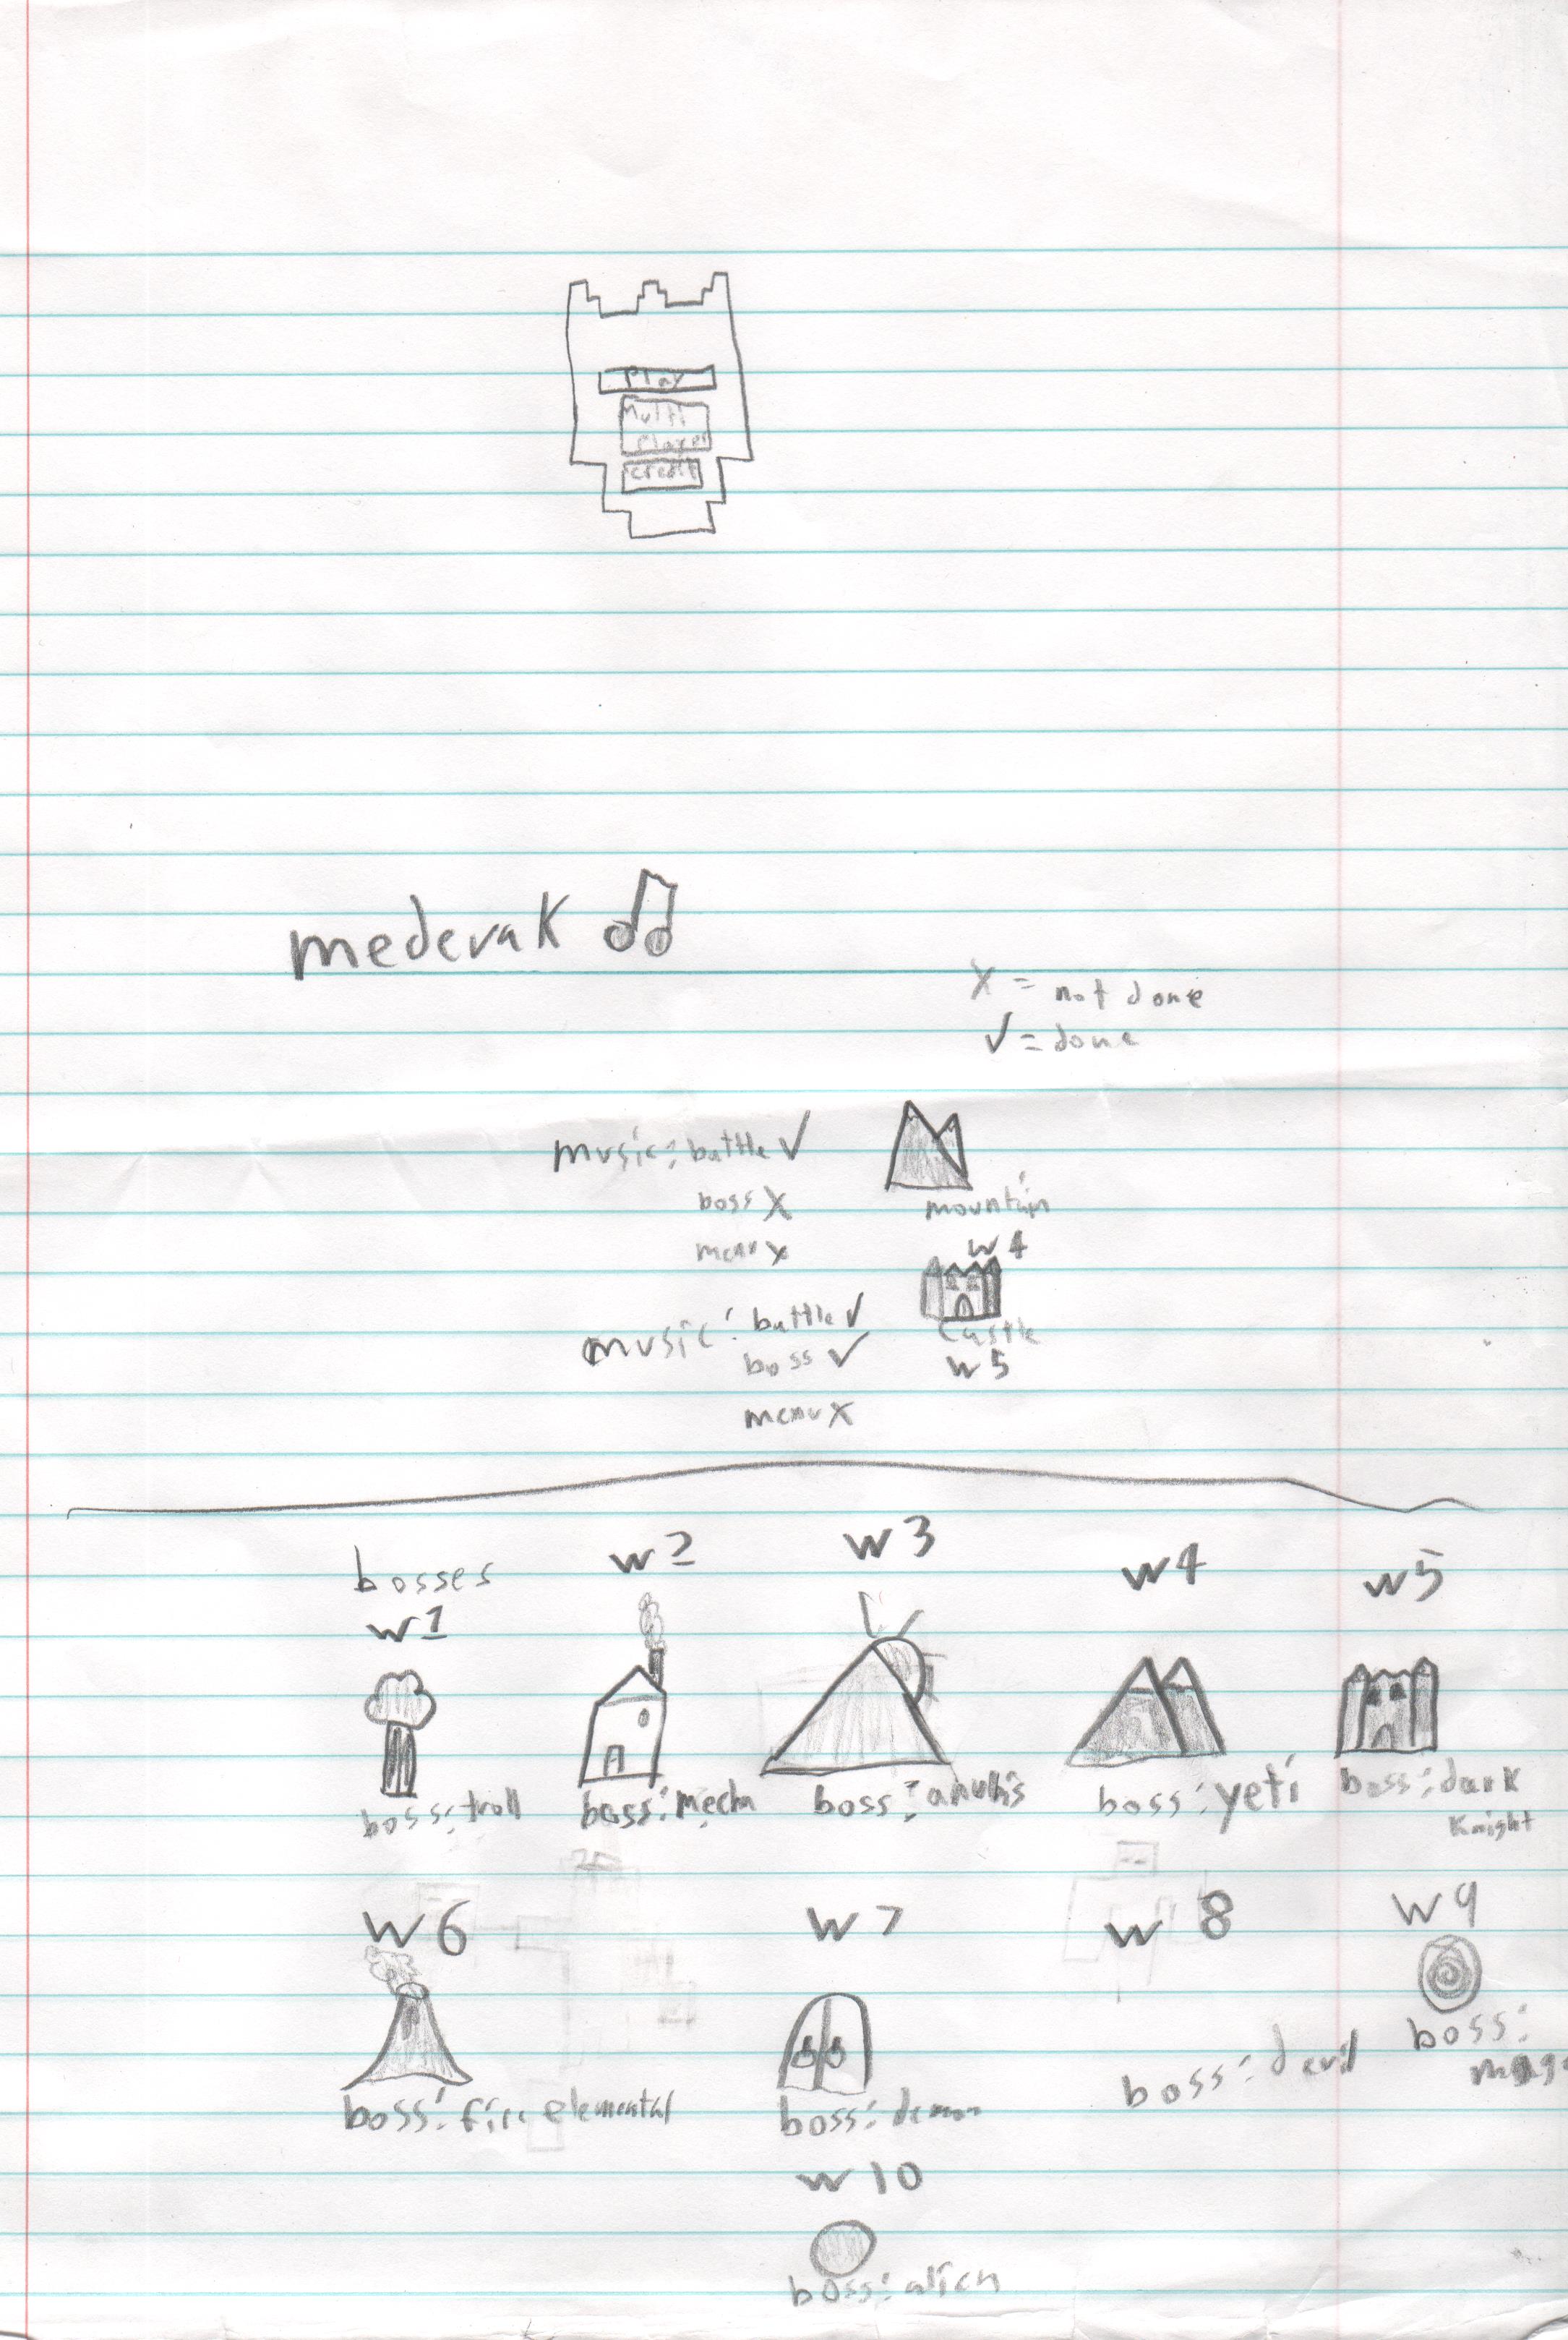 Play
Multi
Player
credit
medevaK
X = not done
✓ = done
music: battle ✓
boss X
menu x
mountain
w4
music: battle ✓
boss ✓
menu X
castle
w5
bosses
w1
w2
w3
w4
w5
boss: troll
boss: mecha
boss: anubis
boss: yeti
boss: dark
Knight
w6
w7
w8
w9
boss: fire elemental
boss: demon
boss: devil
boss:
w10
boss: alien